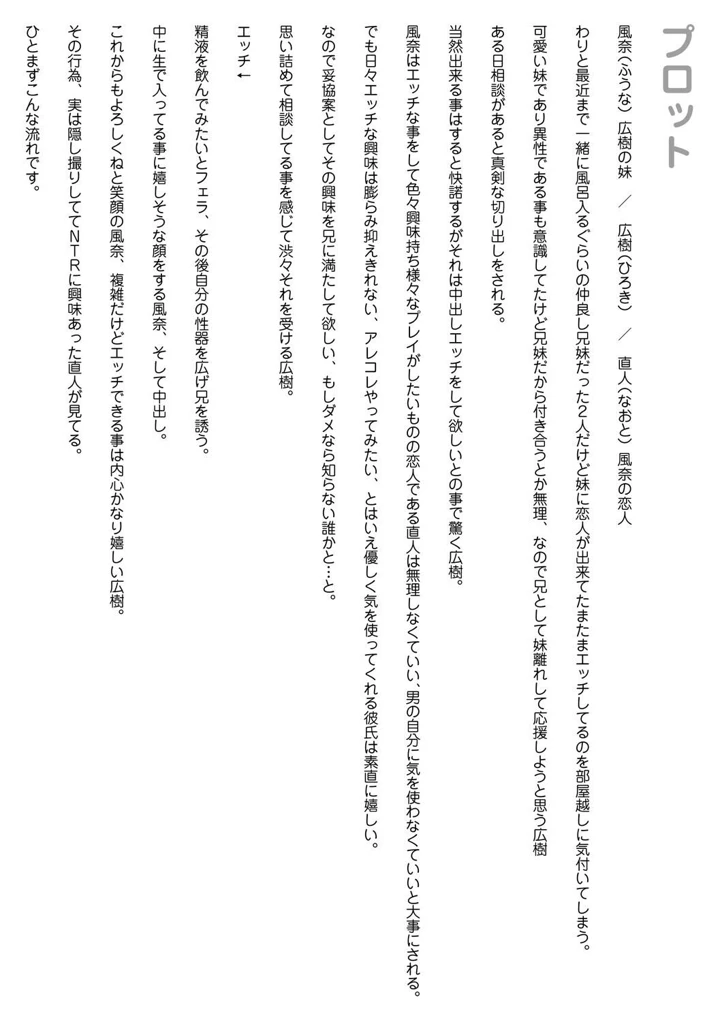 プロット
風奈(ふうな)広樹の妹　／　広樹(ひろき)　／　直人(なおと)風奈の恋人
わりと最近まで一緒に風呂入るぐらいの仲良し兄妹だった２人だけど妹に恋人が出来てたまたまエッチしてるのを部屋越しに気付いてしまう。
可愛い妹であり異性である事も意識してたけど兄妹だから付き合うとか無理、なので兄として妹離れして応援しようと思う広樹
ある日相談があると真剣な切り出しをされる。
当然出来る事はすると快諾するがそれは中出しエッチをして欲しいとの事で驚く広樹。
風奈はエッチな事をして色々興味持ち様々なプレイがしたいものの恋人である直人は無理しなくていい、男の自分に気を使わなくていいと大事にされる。
でも日々エッチな興味は膨らみ抑えきれない、アレコレやってみたい、とはいえ優しく気を使ってくれる彼氏は素直に嬉しい。
なので妥協案としてその興味を兄に満たして欲しい、もしダメなら知らない誰かと…と。
思い詰めて相談してる事を感じて渋々それを受ける広樹。
エッチ←
精液を飲んでみたいとフェラ、その後自分の性器を広げ兄を誘う。
中に生で入ってる事に嬉しそうな顔をする風奈、そして中出し。
これからもよろしくねと笑顔の風奈、複雑だけどエッチできる事は内心かなり嬉しい広樹。
その行為、実は隠し撮りしててＮＴＲに興味あった直人が見てる。
ひとまずこんな流れです。